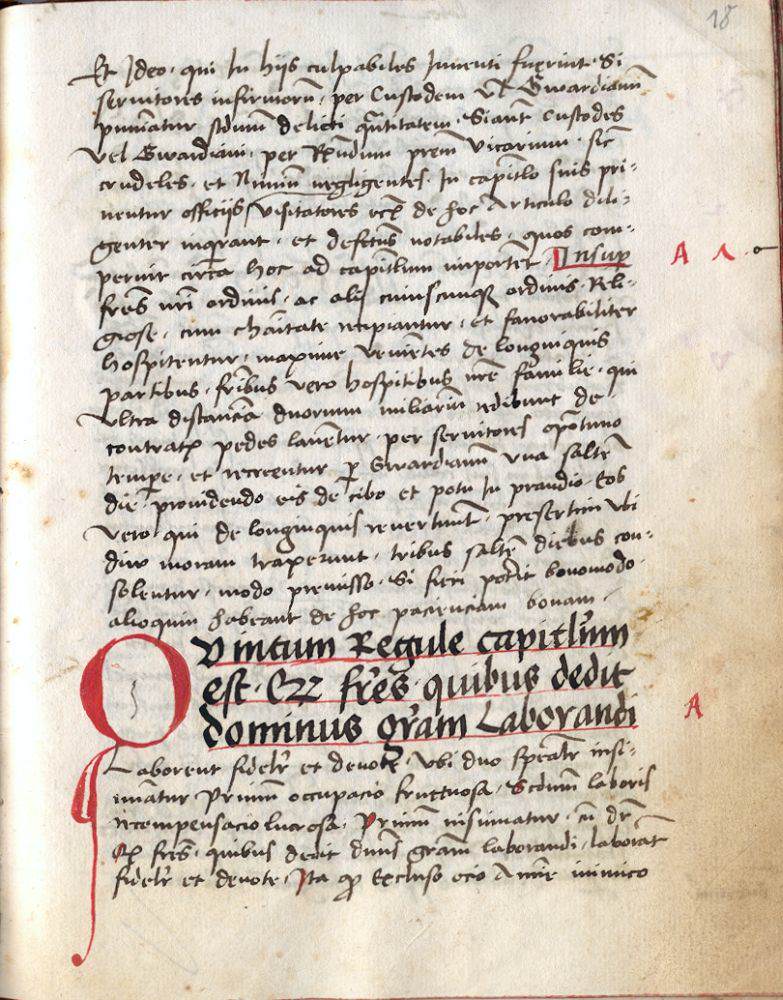 18
Et Ideo · qui In hijs culpabiles Inventi fuerint · Si
servitores infirmorū · per Custodem vl Gwardianū
puniātur scdūm delicti q̄ntitatem · Si aūt Custodes
vel Gwardiani · per Rndum prem vicarium · sic
crudeles · et Nimiū negligentes · In capitlo suis pri-
ventur officijs / visitatores ecā de hoc Articulo dili-
genter inqrant · et defectus notabiles · quos com-
perint circa hoc ad capitlum importēt · Insup
A
frēs nri ordinis · ac alij cuiuscunqꝫ ordinis · Reli-
giose · cum charitate recipiantur · et favorabiliter
hospitentur · maxime venientes de longinquis
partibus · fribus vero hospitibus nre familie · qui
ultra distanciā duorum miliariū redibunt de
contrata pedes laventur · per servitores oportuno
tempe · et recreentur p Gwardianū una saltē
die · providendo eis de cibo et potu In prandio · Eos
vero qui de longinquis revertunt · presertim ubi
diu moram traxerunt · tribus saltē diebus con-
solentur · modo premisso · Si fieri poterit bonomodo ·
alioquin habeant de hoc pacienciam bonam ·
Quintum Regule capitlūm
est · Qꝫ frēs · quibus dedit
dominus grām Laborandi
A
Laborent fidelr et devote · Ubi duo spealr insi-
nuātur Primū occupacio fructuosa · Scdūm laboris
recompensacio lucrosa · Primū insinuatur · cū dr
Qꝫ frēs · quibus dedit dnūs grām laborandi · laborāt
fidelr et devote · Ita qꝫ Excluso ocio Anime inimico